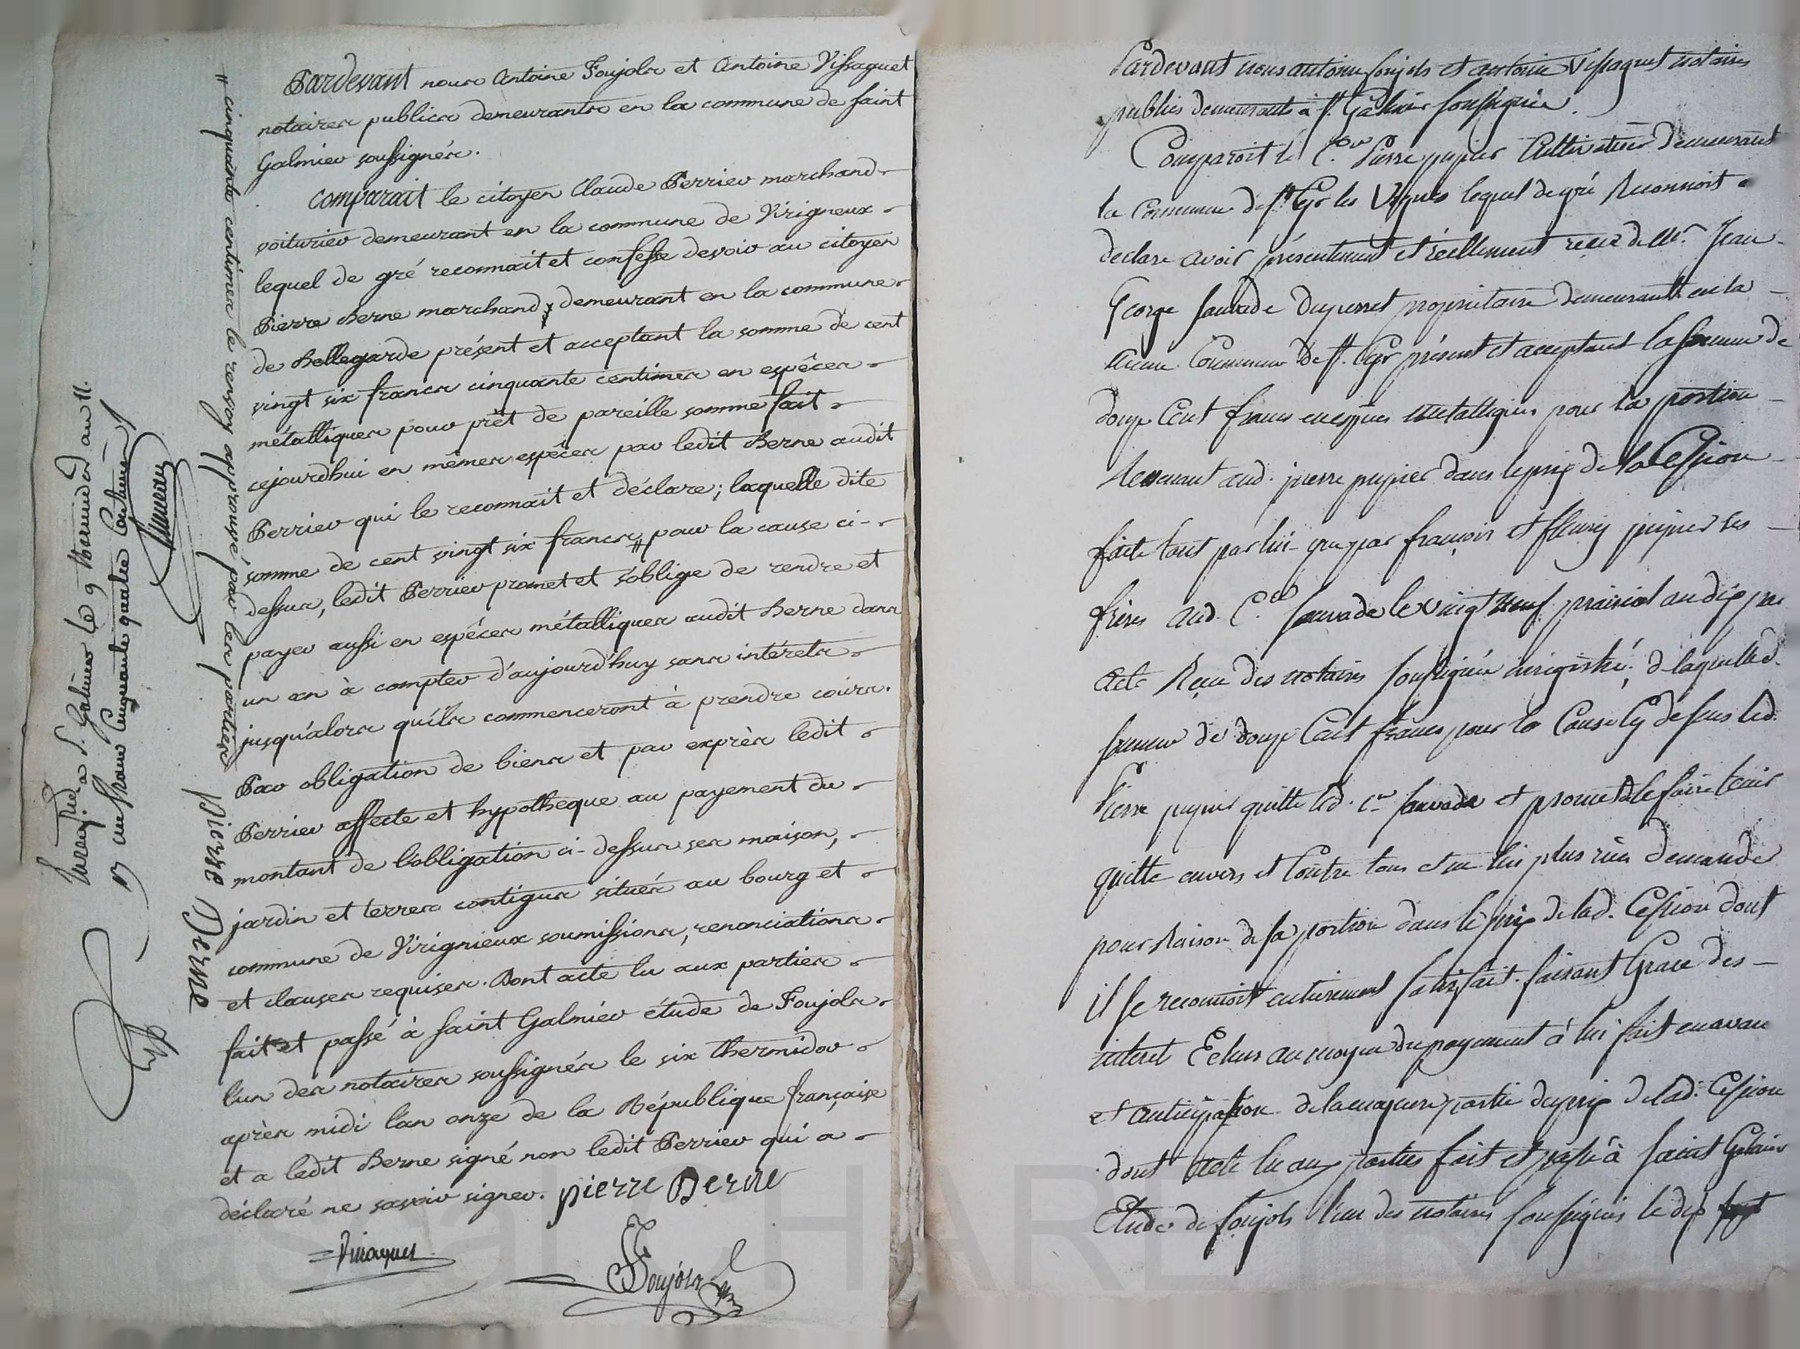 Pardevant nous Antoine Foujols et Antoine Vissaguet
notaires publics demeurants en la commune de saint
Galmier soussignés.
Comparait le citoyen Claude Perrier marchand
voiturier demeurant en la commune de Virigneux
lequel de gré reconnait et confesse devoir au citoyen
Pierre Berne marchand demeurant en la commune
de Bellegarde présent et acceptant la somme de cent
vingt six francs cinquante centimes en espêces
métalliques pour prêt de pareille somme fait
cejourdhui en mêmes espêces par ledit Berne audit
Perrier qui le reconnait et déclare; laquelle dite
somme de cent vingt six francs " pour la cause ci-
dessus, ledit Perrier promet et s'oblige de rendre et
payer aussi en espêces métalliques audit Berne dans
un an à compter d'aujourd'huy sans intérets
jusqu'alors qu'ils commenceront à prendre cours.
Par obligation de biens et par exprès ledit
Perrier affecte et hypotheque au payement du
montant de l'obligation ci-dessus ses maison,
jardin et terres contigus situés au bourg et
commune de Virignieux soumissions, renonciations
et clauses requises. Dont acte lu aux parties
fait et passé à saint Galmier étude de Foujols
l'un des notaires soussignés le six thermidor
après midi l'an onze de la République française
et a ledit Berne signé non ledit Perrier qui a
déclaré ne savoir signer. pierre Berne
Foujols
" cinquante centimes le renvoy approuvé par les parties
Pierre Berne
Enregistré à St Galmier le 9 thermidor an 11.
un franc cinquante quatre centimes
Pardevant nous antoine foujols et antoine Vissaguet notaires
publics demeurants à St. Galmier soussignés.
Comparoit le C.en Pierre pupier Cultivateur demeurant
la Commune de St Cyr les Vignes lequel de gré Reconnoit
declare avoir présentement et réellement reçu de Mr. Jean
George Sauvade duperret propriétaire demeurant en la
meme Commune de St. Cyr présent et acceptant la somme de
douze Cent francs en espèces metalliques pour la portion
Revenant aud. pierre pupier dans le prix de la Cession
faite tant par lui que par françois et fleury pupier ses
frères aud. C.en Sauvade le vingt neuf prairial an dix par
acte Reçu des notaires soussignés enregistré; de laquelle d.
somme de douze Cent francs pour la Cause Cy dessus led.
Pierre pupier quitte led. C.en Sauvade et promet le faire tenir
quitte envers et Contre tous et ne lui plus rien demande
pour Raison de sa portion dans le prix de lad. Cession dont
il se reconnoit entierement satisfait. faisant Grace des
interet Echus au moyen du payement à lui fait en avan
et anticipation de la majeure partie du prix de lad. Cession
dont acte lu aux parties fait et passé à Saint Galmier
Etude de foujols l'un des notaires soussignés le dix